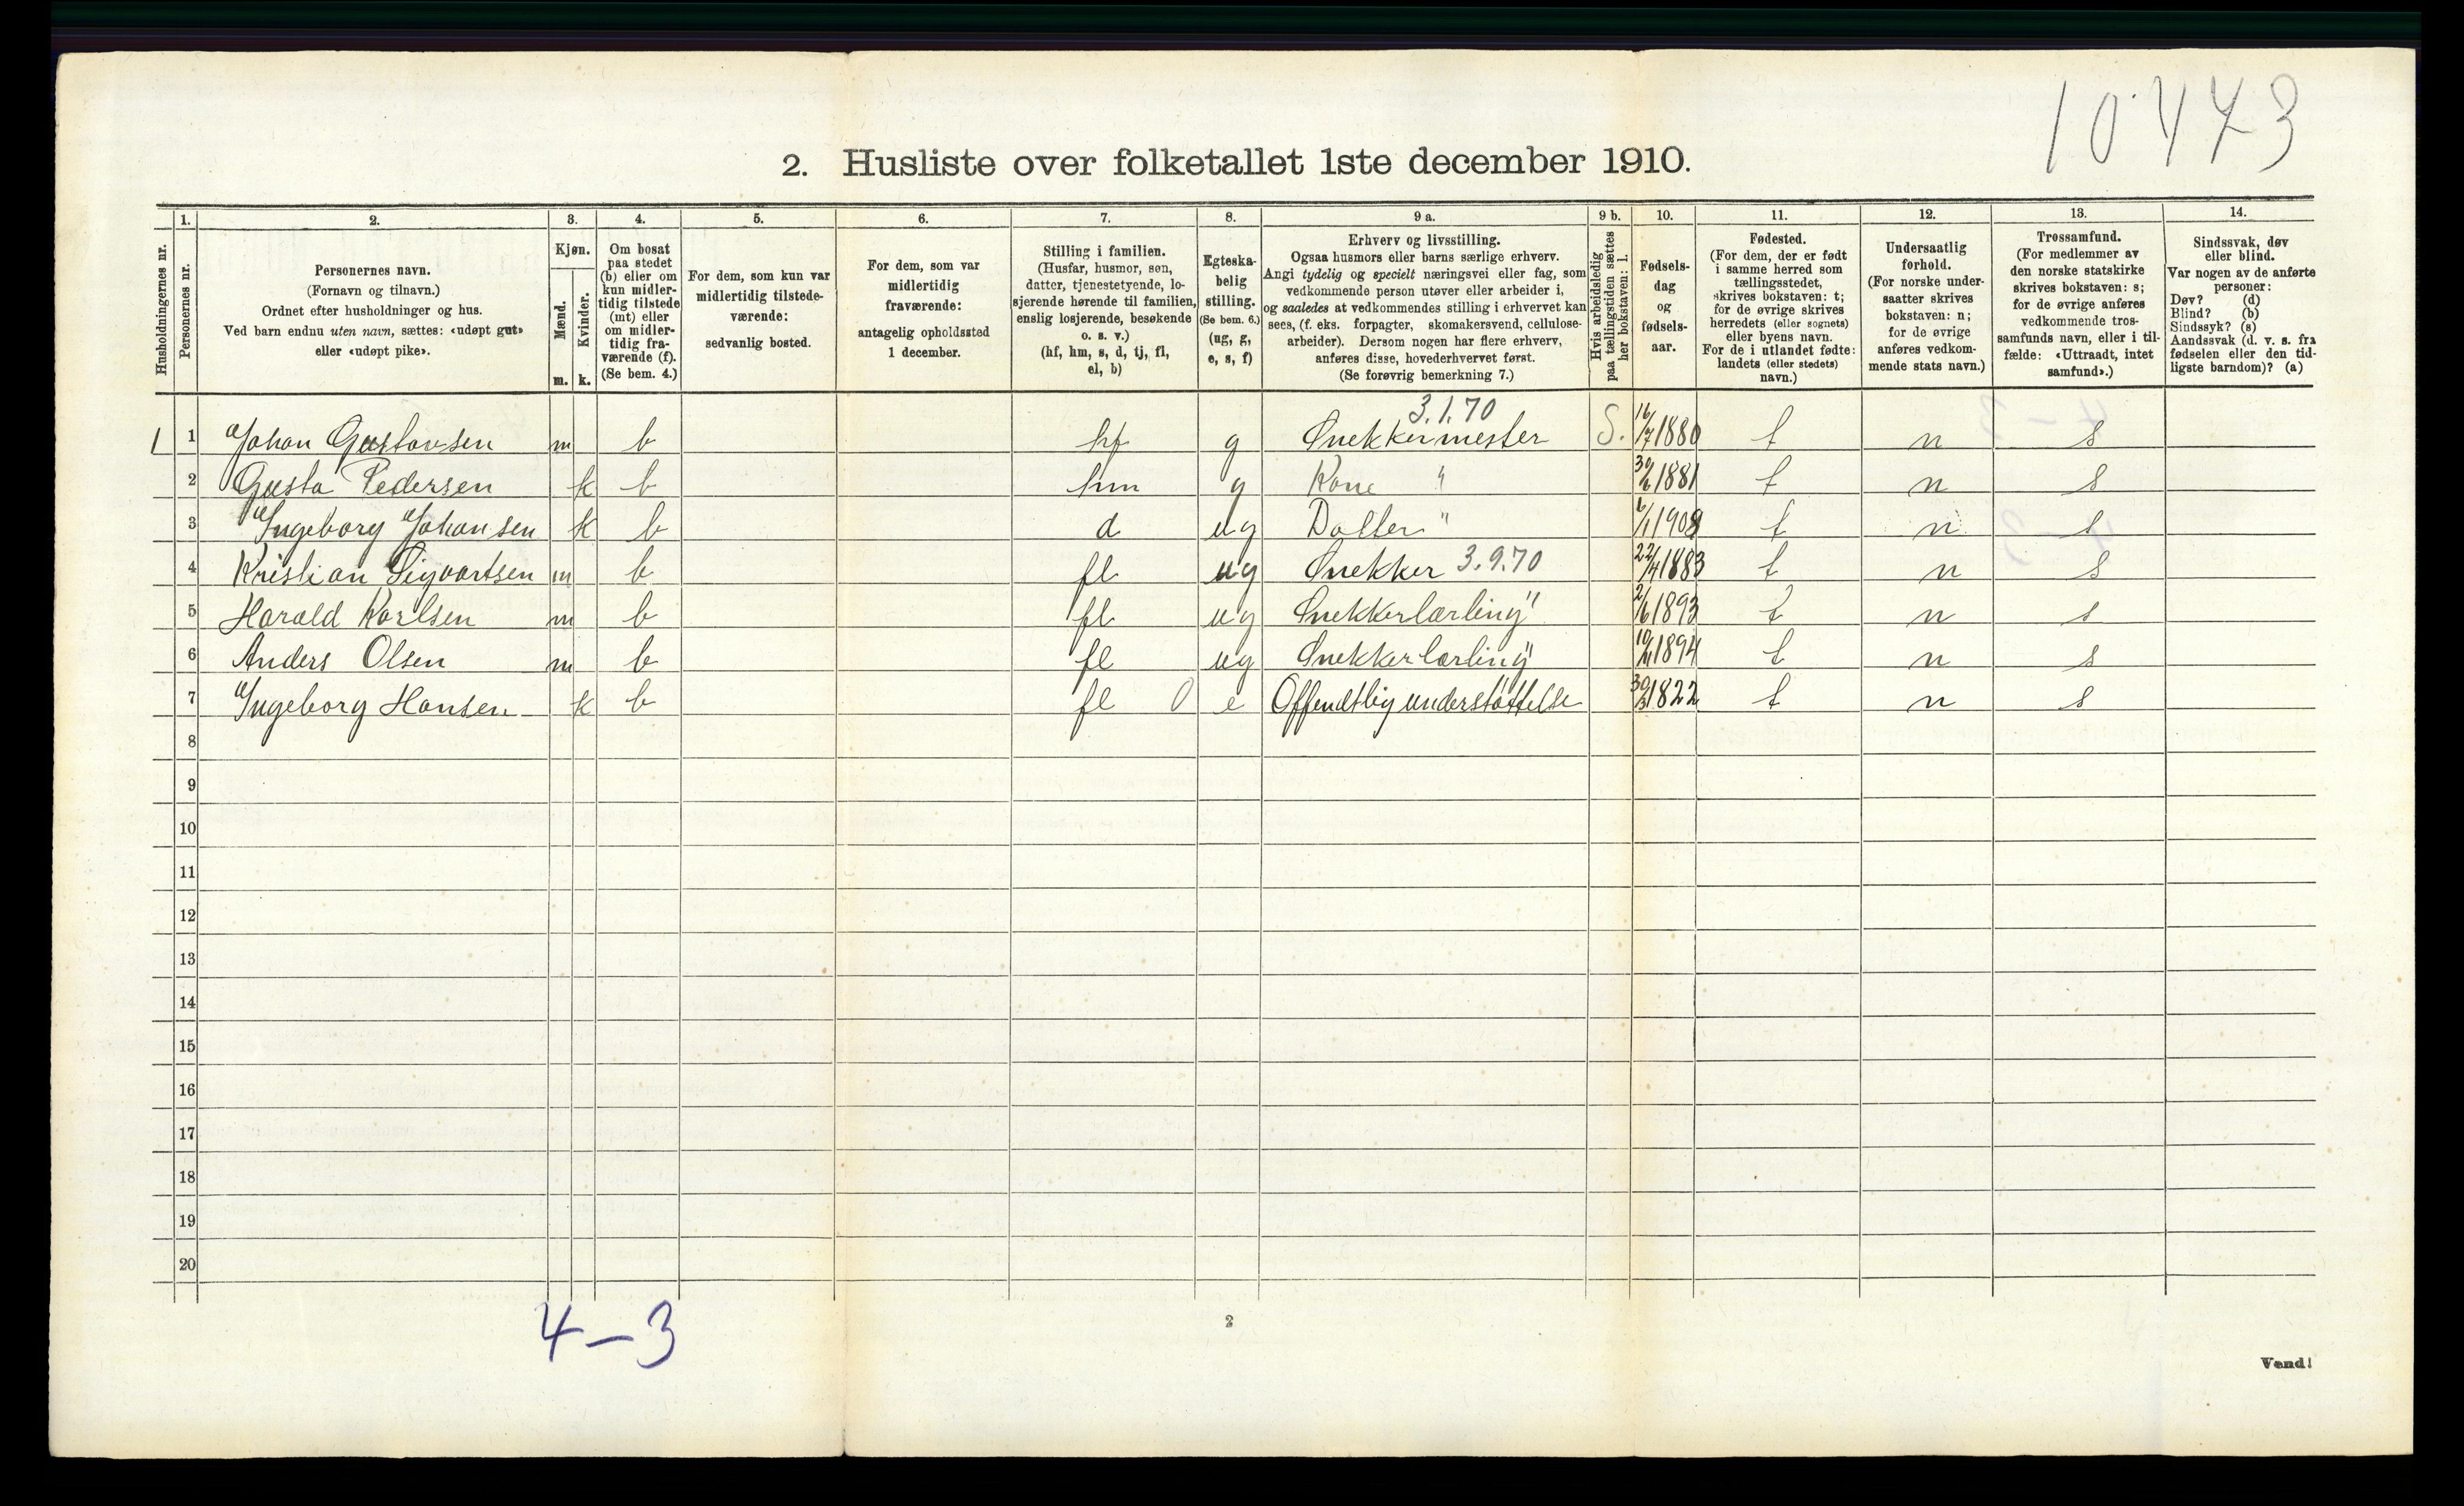 10443
2. Husliste over folketallet 1ste december 1910.
Husholdningernes nr.
1.
Personernes nr.
2.
Personernes navn.
(Fornavn og tilnavn.)
Ordnet efter husholdninger og hus.
Ved barn endnu uten navn, sættes: «udøpt gut»
eller «udøpt pike».
3.
Kjøn.
Mænd.
Kvinder.
m. k.
4.
Om bosat
paa stedet
(b) eller om
kun midler-
tidig tilstede
(mt) eller
om midler-
tidig fra-
værende (f).
(Se bem. 4.)
5.
For dem, som kun var
midlertidig tilstede-
værende:
sedvanlig bosted.
6.
For dem, som var
midlertidig
fraværende:
antagelig opholdssted
1 december.
7.
Stilling i familien.
(Husfar, husmor, søn,
datter, tjenestetyende, lo-
sjerende hørende til familien,
enslig losjerende, besøkende
o. s. v.)
(hf, hm, s, d, tj, fl,
el, b)
8.
Egteska-
belig
stilling.
(Se bem. 6.)
(ug, g,
e, s, f)
9 a.
Erhverv og livsstilling.
Ogsaa husmors eller barns særlige erhverv.
Angi tydelig og specielt næringsvei eller fag, som
vedkommende person utøver eller arbeider i,
og saaledes at vedkommendes stilling i erhvervet kan
sees, (f. eks. forpagter, skomakersvend, cellulose-
arbeider). Dersom nogen har flere erhverv,
anføres disse, hovederhvervet først.
(Se forøvrig bemerkning 7.)
9 b.
Hvis arbeidsledig
paa tællingstiden sættes
her bokstaven: l.
10.
Fødsels-
dag
og
fødsels-
aar.
11.
Fødested.
(For dem, der er født
i samme herred som
tællingsstedet,
skrives bokstaven: t;
for de øvrige skrives
herredets (eller sognets)
eller byens navn.
For de i utlandet fødte:
landets (eller stedets)
navn.)
12.
Undersaatlig
forhold.
(For norske under-
saatter skrives
bokstaven: n;
for de øvrige
anføres vedkom-
mende stats navn.)
13.
Trossamfund.
(For medlemmer av
den norske statskirke
skrives bokstaven: s;
for de øvrige anføres
vedkommende tros-
samfunds navn, eller i til-
fælde: «Uttraadt, intet
samfund».)
14.
Sindssvak, døv
eller blind.
Var nogen av de anførte
personer:
Døv? (d)
Blind? (b)
Sindssyk? (s)
Aandssvak (d. v. s. fra
fødselen eller den tid-
ligste barndom)? (a)
3.1.70
1 1 Johan Gustavsen m b hf g Snekkermester S. 16/7 1880 t n s
2 Gusta Pedersen k b hm g Kone " 30/6 1881 t n s
3 Ingeborg Johansen k b d ug Datter " 6/1 1908 t n s
4 Kristian Sigvartsen m b fl ug Snekker 3.9.70 22/4 1883 t n s
5 Harald Karlsen m b fl ug Snekkerlærling " 2/6 1893 t n s
6 Anders Olsen m b fl ug Snekkerlærling " 1894 t n s
7 Ingeborg Hansen k b fl 0 e Offendtlig understøttelse 30/3 1822 t n s
8
9
10
11
12
13
14
15
16
17
18
19
20
4-3
2
Vend!